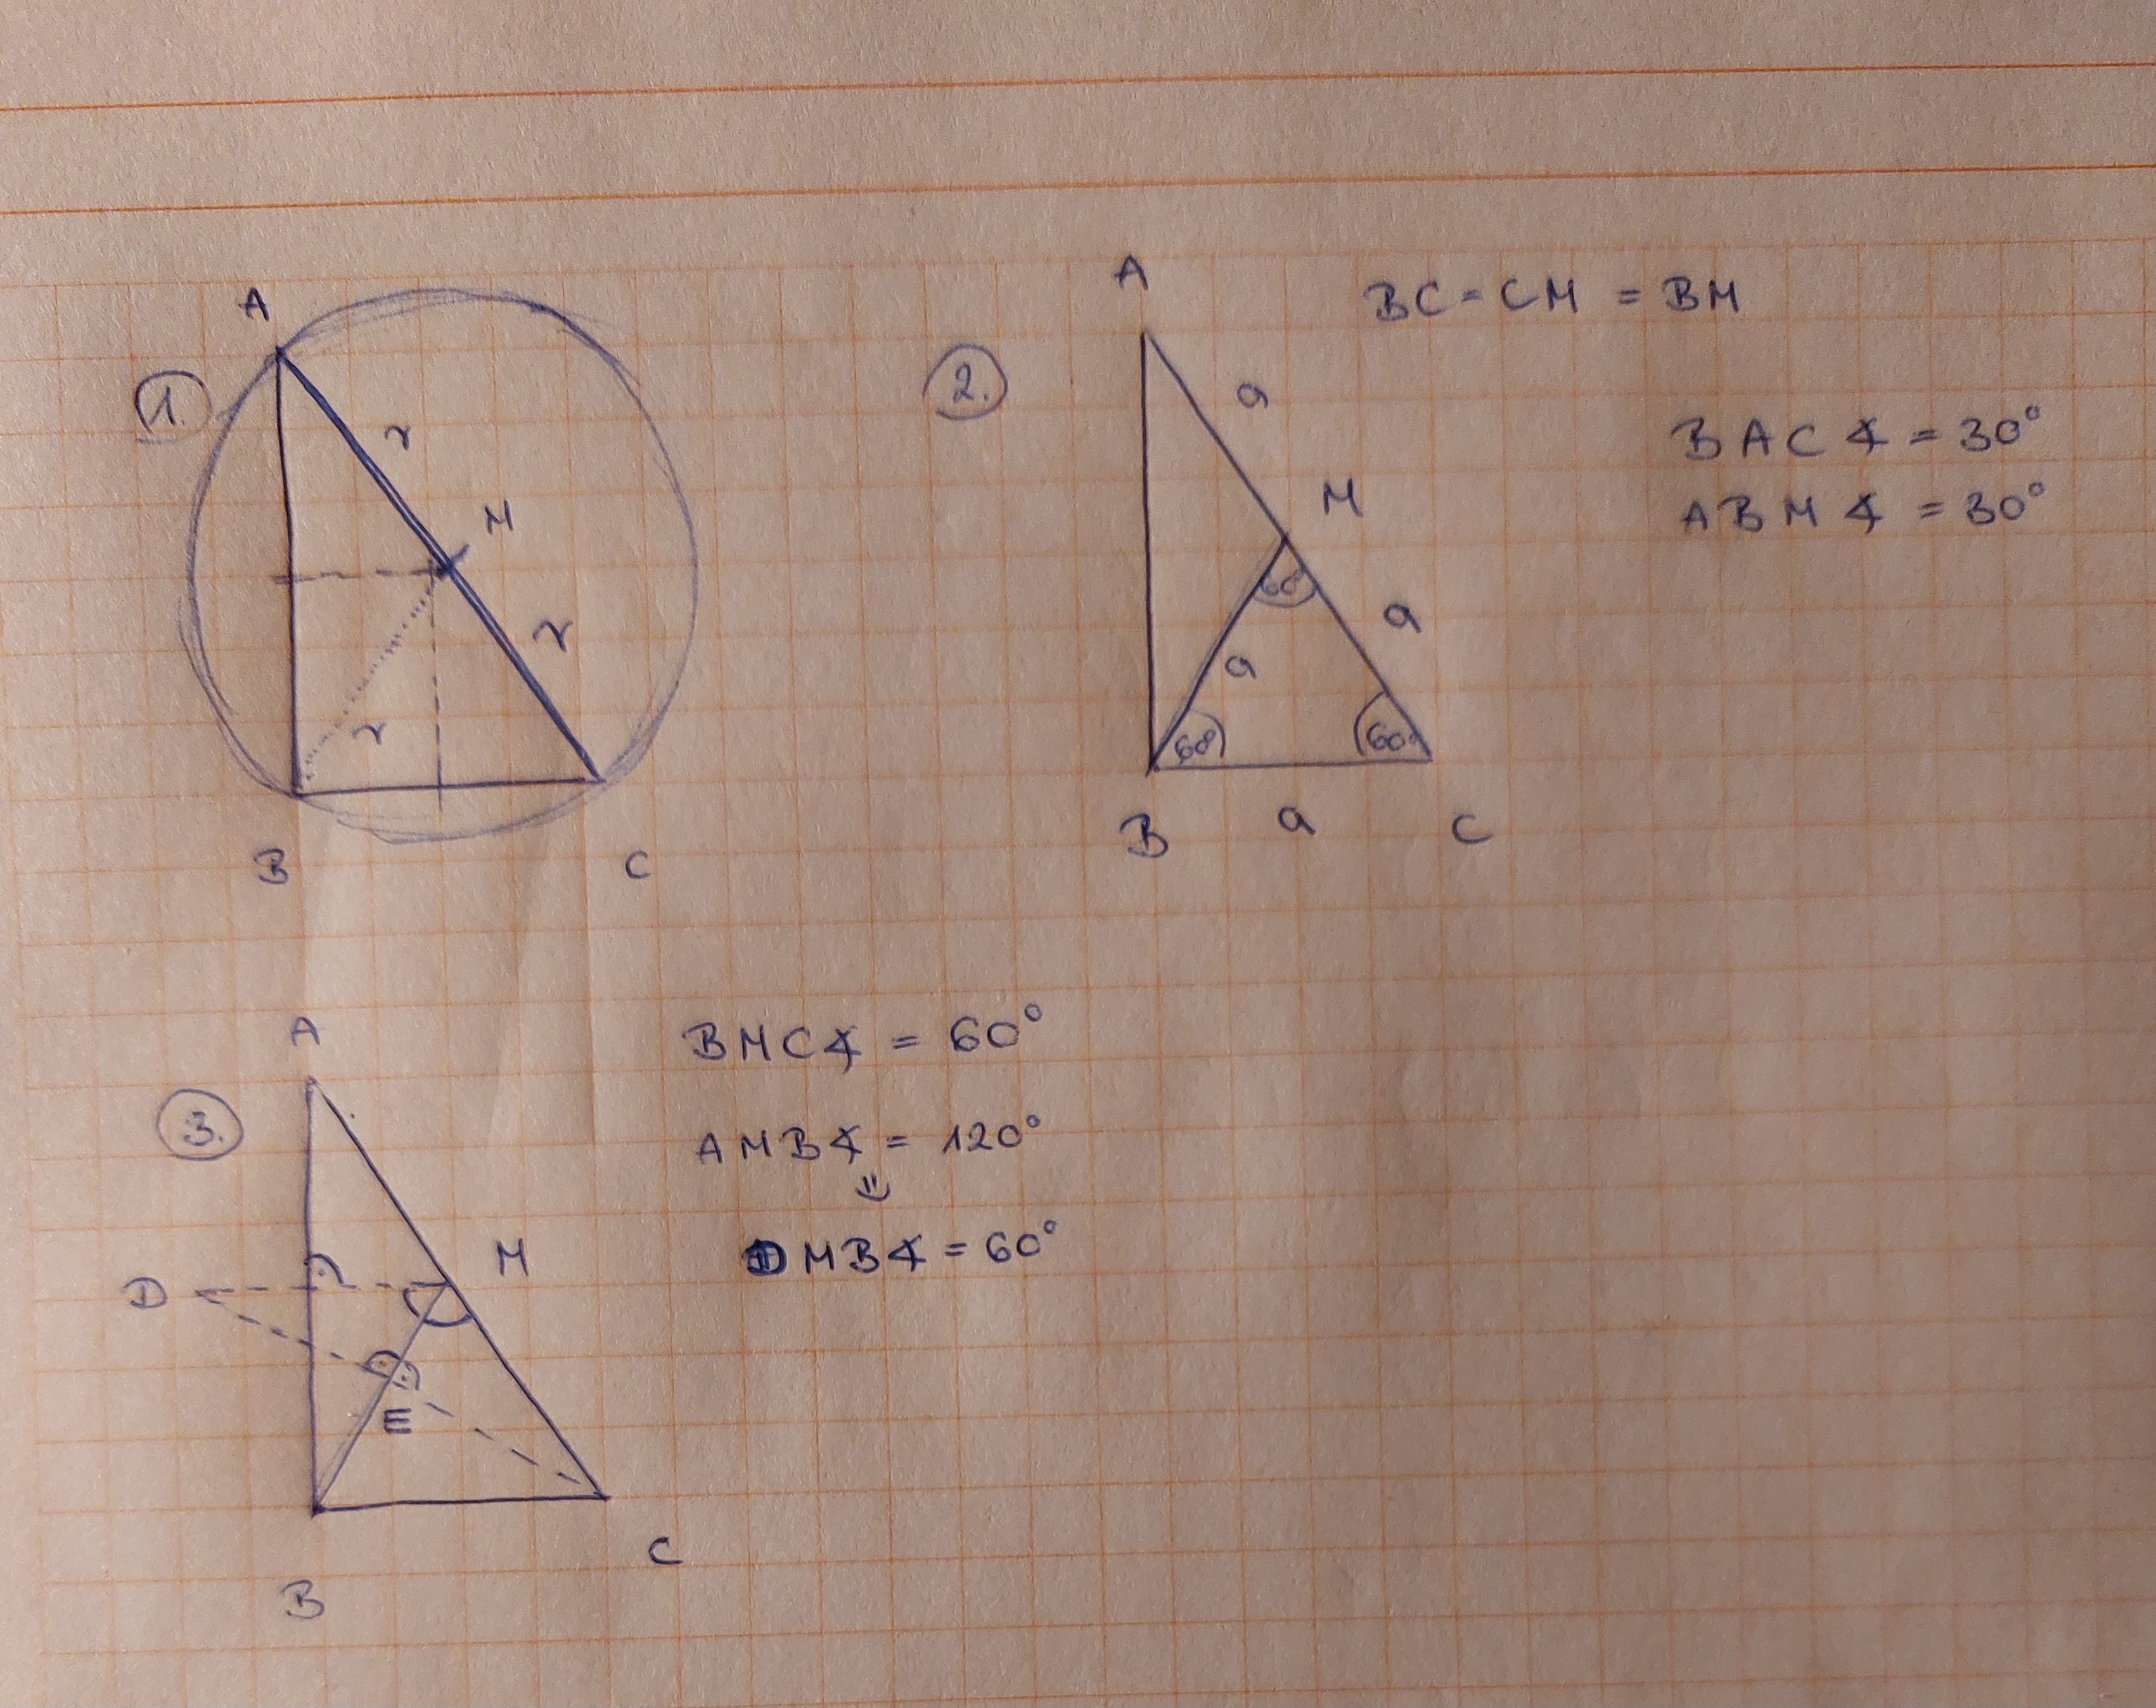 A
1.
r
M
r
r
B
C
A
BC = CM = BM
2.
a
BAC∡ = 30°
M
ABM∡ = 30°
60°
a
a
60°
60°
B
a
C
A
BMC∡ = 60°
3.
AMB∡ = 120°
⇓
M
DMB∡ = 60°
D
E
C
B